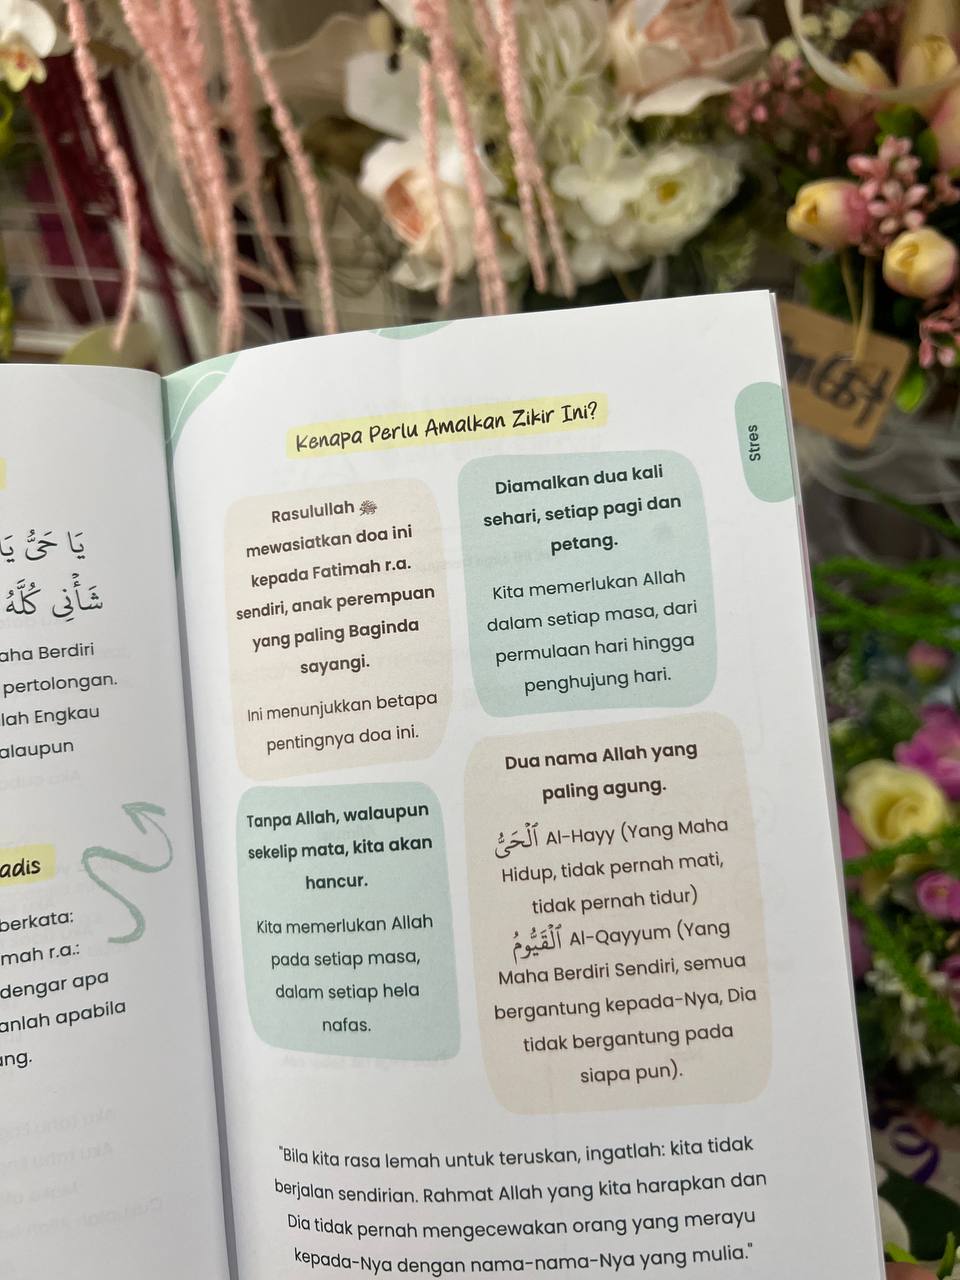 يَا حَيُّ يَا
شَأْنِي كُلَّهُ
aha Berdiri
pertolongan.
lah Engkau
alaupun
adis
berkata:
mah r.a.:
dengar apa
anlah apabila
ang.
Kenapa Perlu Amalkan Zikir Ini?
Stres
Rasulullah ﷺ
mewasiatkan doa ini
kepada Fatimah r.a.
sendiri, anak perempuan
yang paling Baginda
sayangi.
Ini menunjukkan betapa
pentingnya doa ini.
Diamalkan dua kali
sehari, setiap pagi dan
petang.
Kita memerlukan Allah
dalam setiap masa, dari
permulaan hari hingga
penghujung hari.
Tanpa Allah, walaupun
sekelip mata, kita akan
hancur.
Kita memerlukan Allah
pada setiap masa,
dalam setiap hela
nafas.
Dua nama Allah yang
paling agung.
ٱلْحَيُّ Al-Hayy (Yang Maha
Hidup, tidak pernah mati,
tidak pernah tidur)
ٱلْقَيُّومُ Al-Qayyum (Yang
Maha Berdiri Sendiri, semua
bergantung kepada-Nya, Dia
tidak bergantung pada
siapa pun).
"Bila kita rasa lemah untuk teruskan, ingatlah: kita tidak
berjalan sendirian. Rahmat Allah yang kita harapkan dan
Dia tidak pernah mengecewakan orang yang merayu
kepada-Nya dengan nama-nama-Nya yang mulia."